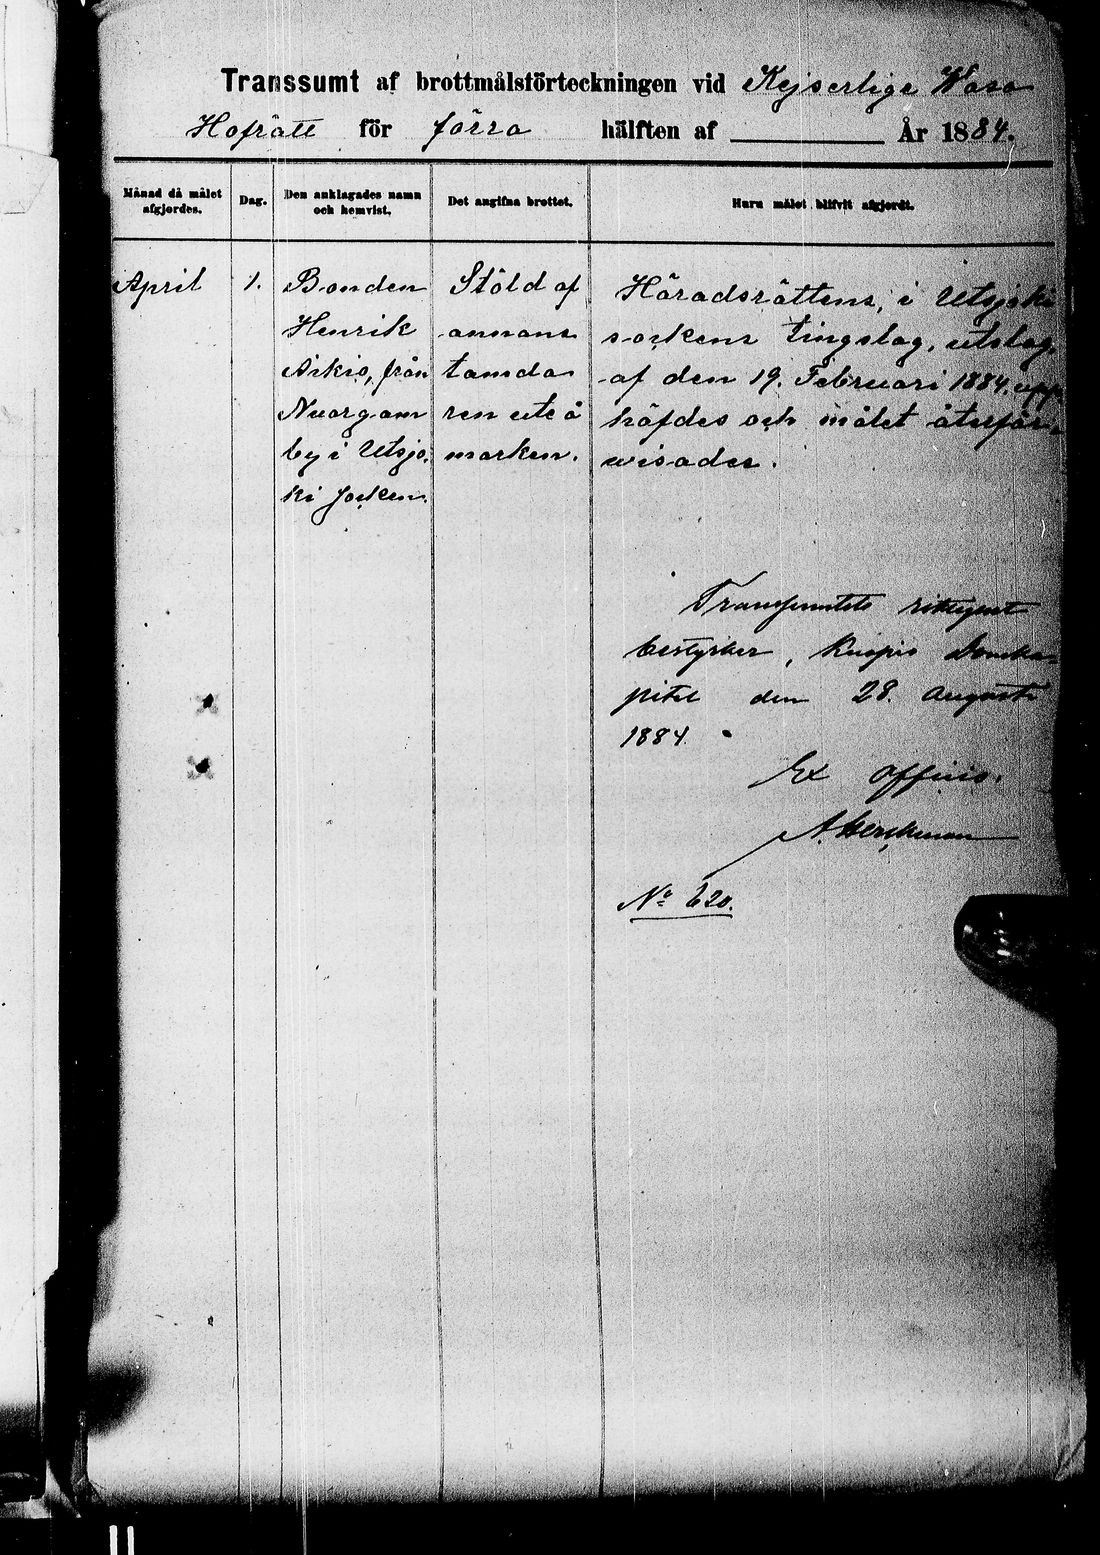 Transsumt af brottmålsförteckningen vid Kejserliga Wasa
Hofrätt för förra hälften af År 1884.
Månad då målet afgjordes.
Dag.
Den anklagades namn och hemvist.
Det angifna brottet.
Huru målet blifvit afgjordt.
April
1.
Bonden
Henrik
Aikio, från
Nuorgam
by i Utsjo
ki socken.
Stöld af
annans
tamda
ren ute å
marken.
Häradsrättens, i Utsjoki
sockens tingslag, utslag
af den 19. Februari 1884, upp
häfdes och målet återför-
wisades.
Transsumtets riktighet
bestyrker, Kuopio Domka-
pitel den 28. Augusti
1884.
Ex officio.
No 620.